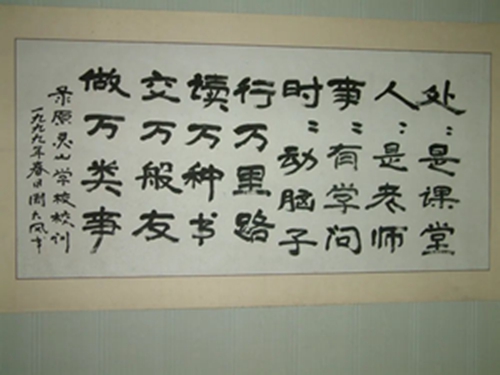 处:是课堂
人:是老师
事:有学问
时:动脑子
行万里路
读万种书
交万般友
做万类事
录原灵山学校校训
一九九九年春日